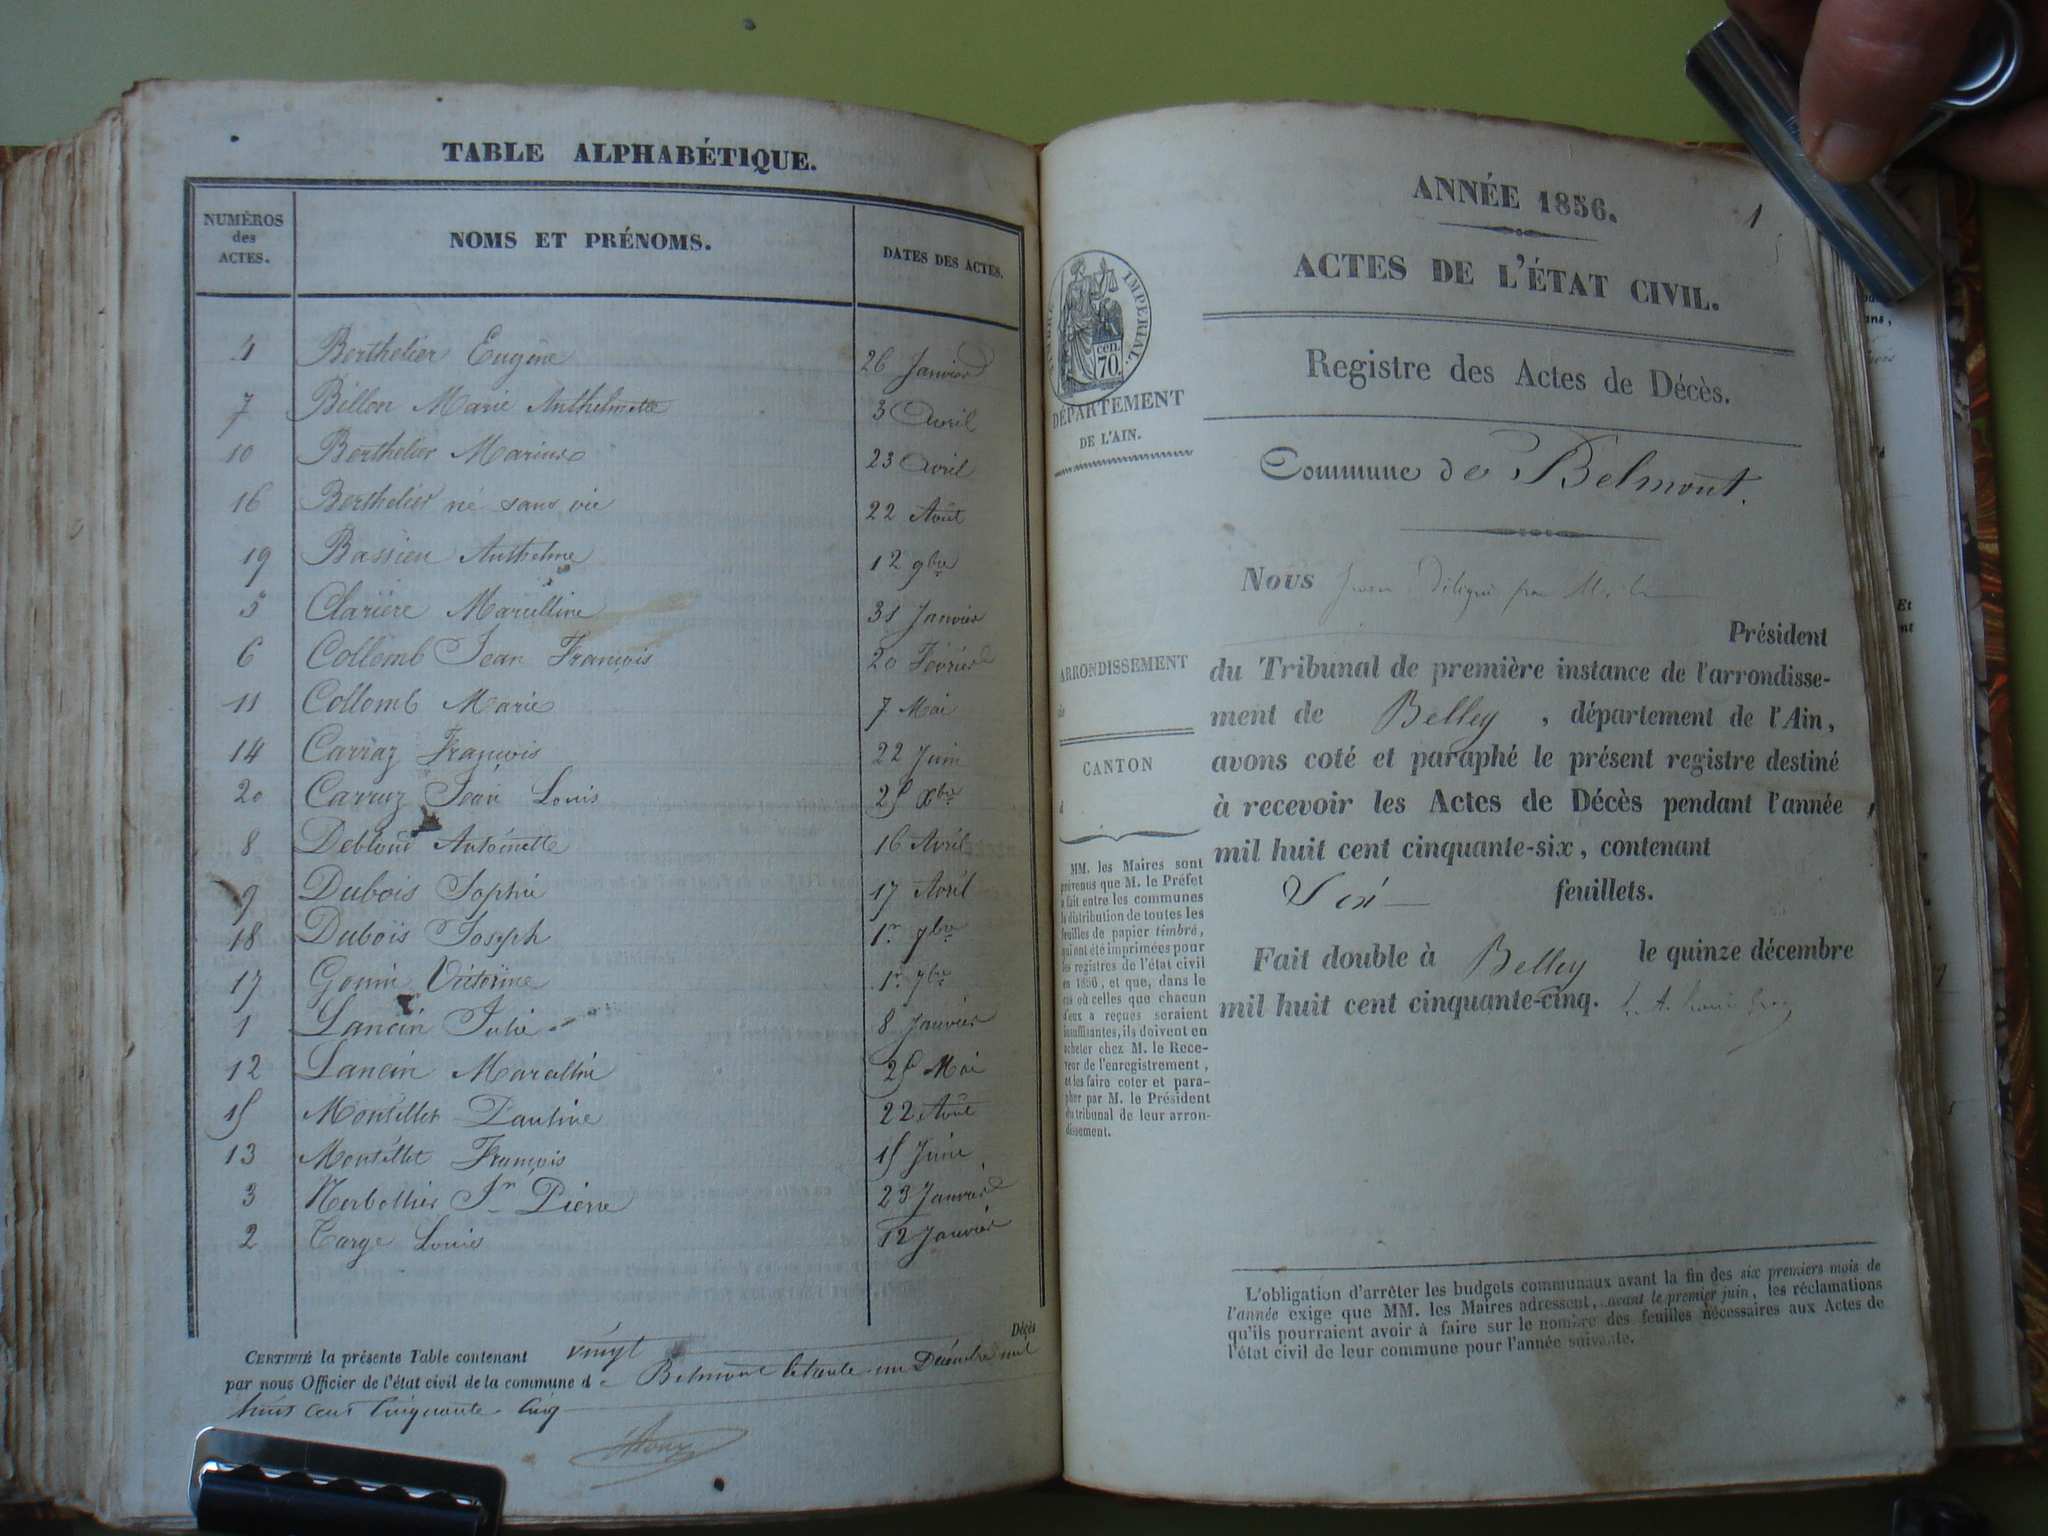 TABLE ALPHABÉTIQUE.
NUMÉROS des ACTES. NOMS ET PRÉNOMS. DATES DES ACTES.
4 Berthelier Eugène 26 Janvier
7 Billon Marie Anthelmette 3 Avril
10 Berthelier Marius 23 Avril
16 Berthelier né sans vie 22 Août
19 Bassieu Anthelme 12 9bre
5 Clarière Marcelline 31 Janvier
6 Collomb Jean François 20 Février
11 Collomb Marie 7 Mai
14 Carraz François 22 Juin
20 Carraz Jean Louis 25 Xbre
8 Antoinette 16 Avril
9 Dubois Sophie 17 Avril
18 Dubois Joseph 1er 9bre
17 Gonin Victorine 1er 7bre
1 Lancin Julie 8 Janvier
12 Lancin Marcellin 25 Mai
15 Montillet Pauline 22 Août
13 Montillet François 15 Juin
3 Jn Pierre 23 Janvier
2 Targe Louis 12 Janvier
CERTIFIÉ la présente Table contenant vingt Décès
par nous Officier de l'état civil de la commune de Belmont le trente-un Décembre mil
huit cent cinquante-cinq
ANNÉE 1856. 1
ACTES DE L'ÉTAT CIVIL.
TIMBRE IMPÉRIAL.
70 cen.
Registre des Actes de Décès.
DÉPARTEMENT
DE L'AIN.
Commune de Belmont.
Nous
Président
ARRONDISSEMENT
de
du Tribunal de première instance de l'arrondisse-
ment de Belley, département de l'Ain,
CANTON
d
avons coté et paraphé le présent registre destiné
à recevoir les Actes de Décès pendant l'année
mil huit cent cinquante-six, contenant
Six feuillets.
Fait double à Belley le quinze décembre
mil huit cent cinquante-cinq.
MM. les Maires sont
prévenus que M. le Préfet
a fait entre les communes
la distribution de toutes les
feuilles de papier timbré,
qui ont été imprimées pour
les registres de l'état civil
en 1856, et que, dans le
cas où celles que chacun
d'eux a reçues seraient
insuffisantes, ils doivent en
acheter chez M. le Rece-
veur de l'enregistrement,
et les faire coter et para-
pher par M. le Président
du tribunal de leur arron-
dissement.
L'obligation d'arrêter les budgets communaux avant la fin des six premiers mois de
l'année exige que MM. les Maires adressent, avant le premier juin, les réclamations
qu'ils pourraient avoir à faire sur le nombre des feuilles nécessaires aux Actes de
l'état civil de leur commune pour l'année suivante.